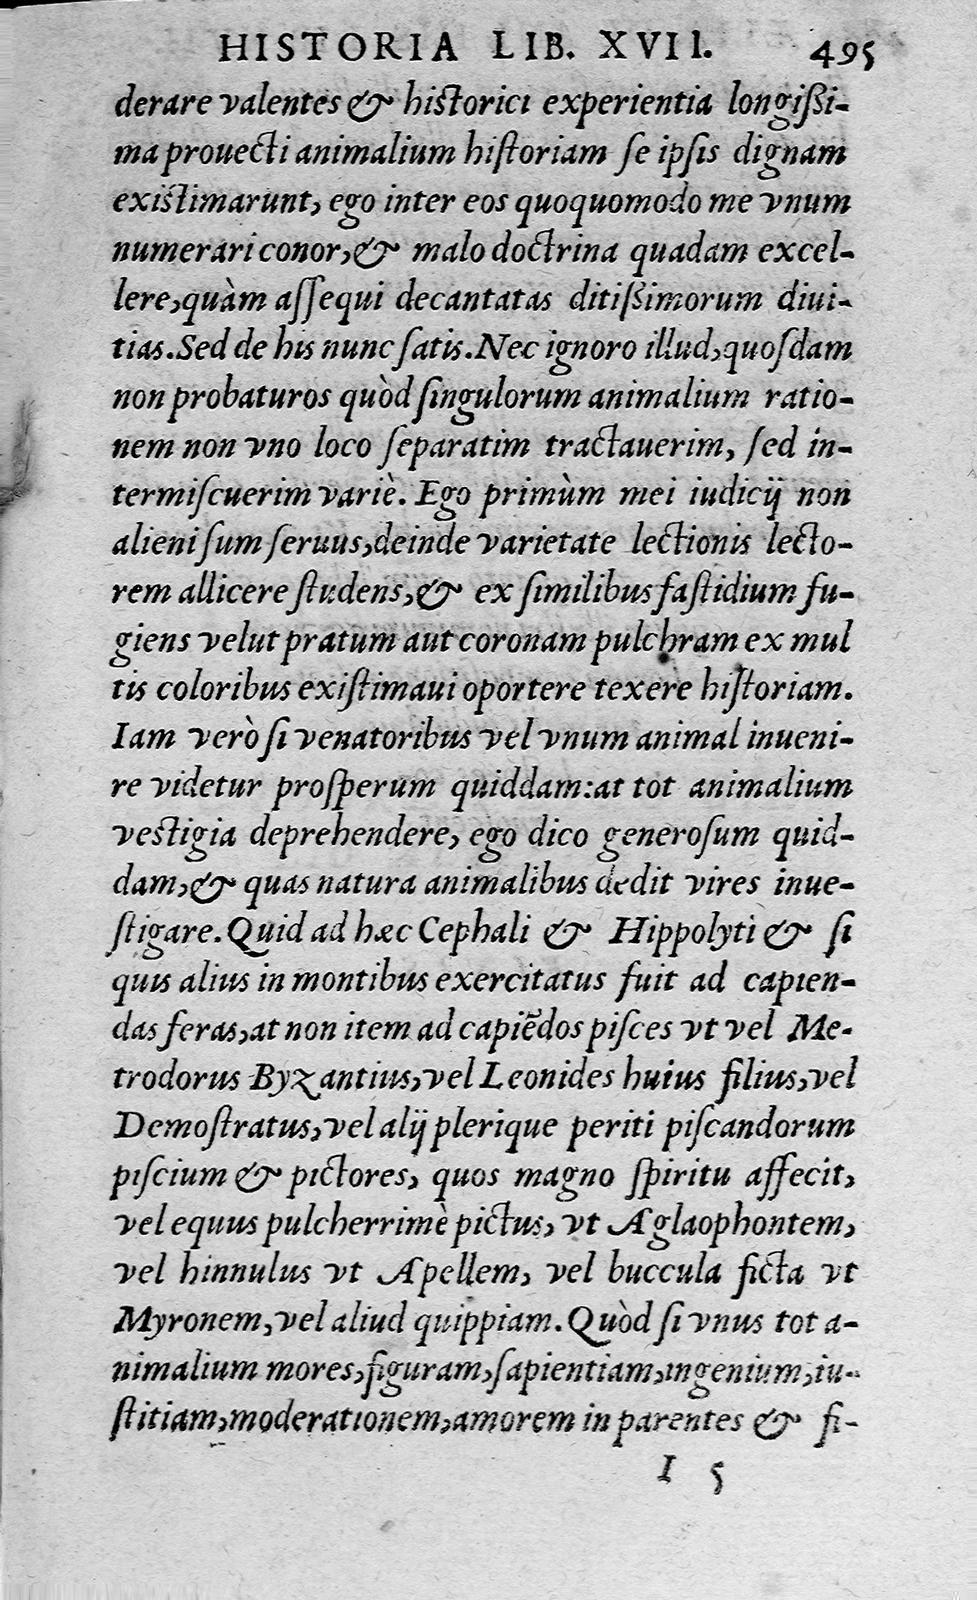 HISTORIA LIB. XVII. 495
derare valentes & historici experientia longißi-
ma prouecti animalium historiam se ipsis dignam
existimarunt, ego inter eos quoquomodo me vnum
numerari conor, & malo doctrina quadam excel-
lere, quàm assequi decantatas ditißimorum diui-
tias. Sed de his nunc satis. Nec ignoro illud, quosdam
non probaturos quòd singulorum animalium ratio-
nem non vno loco separatim tractauerim, sed in-
termiscuerim variè. Ego primùm mei iudicij non
alieni sum seruus, deinde varietate lectionis lecto-
rem allicere studens, & ex similibus fastidium fu-
giens velut pratum aut coronam pulchram ex mul
tis coloribus existimaui oportere texere historiam.
Iam verò si venatoribus vel vnum animal inueni-
re videtur prosperum quiddam: at tot animalium
vestigia deprehendere, ego dico generosum quid-
dam, & quas natura animalibus dedit vires inue-
stigare. Quid ad hæc Cephali & Hippolyti & si
quis alius in montibus exercitatus fuit ad capien-
das feras, at non item ad capiẽdos pisces vt vel Me-
trodorus Byzantius, vel Leonides huius filius, vel
Demostratus, vel alij plerique periti piscandorum
piscium & pictores, quos magno spiritu affecit,
vel equus pulcherrimè pictus, vt Aglaophontem,
vel hinnulus vt Apellem, vel buccula ficta vt
Myronem, vel aliud quippiam. Quòd si vnus tot a-
nimalium mores, figuram, sapientiam, ingenium, iu-
stitiam, moderationem, amorem in parentes & fi-
I 5